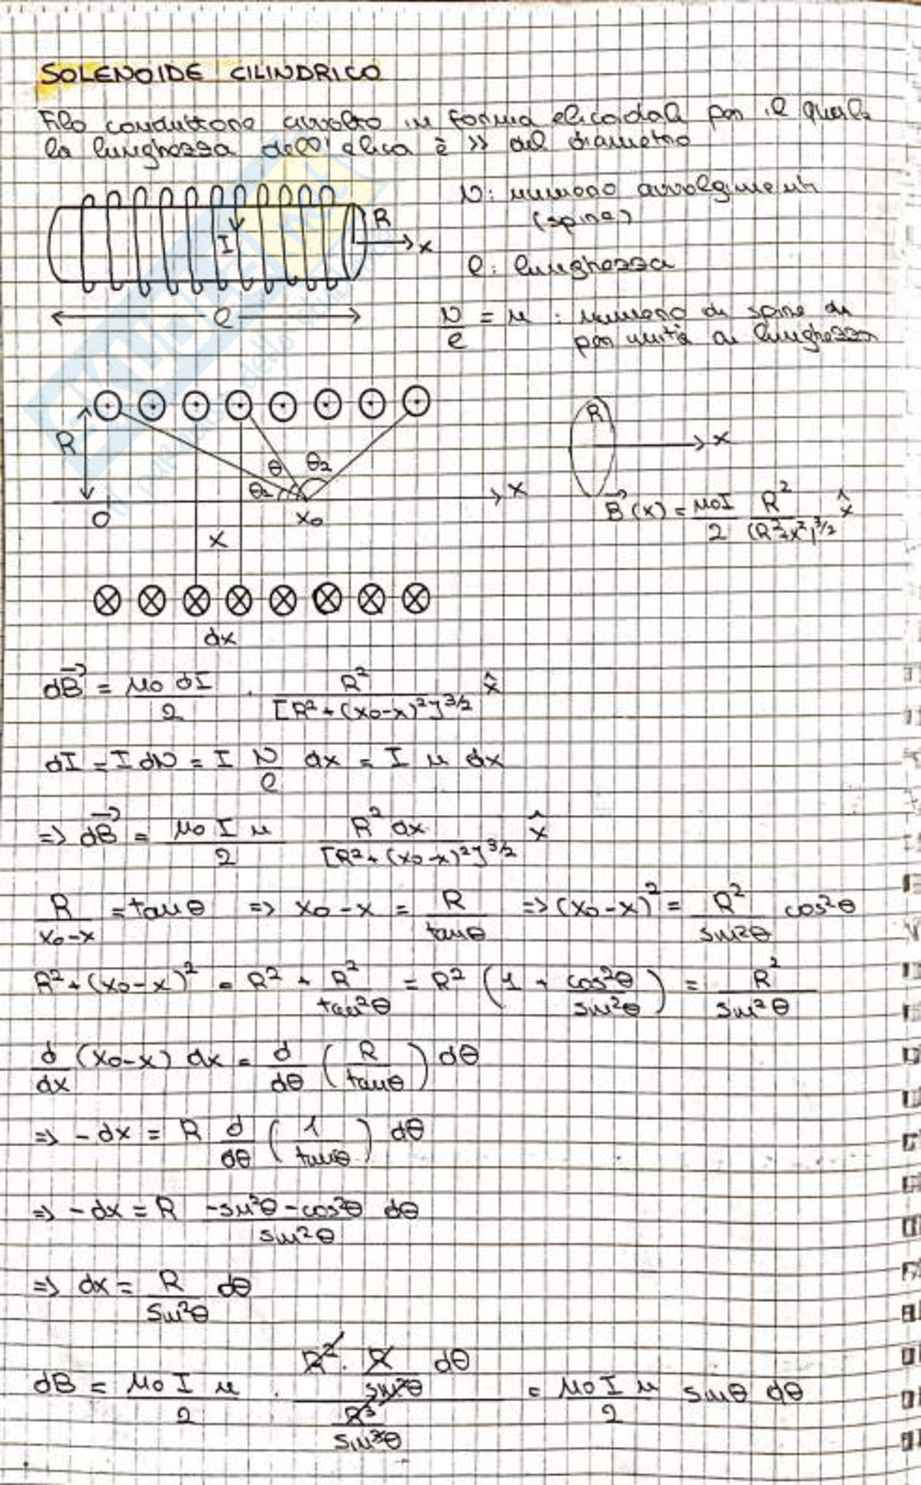 SOLENOIDE CILINDRICO
Filo conduttore avvolto in forma elicoidale per il quale
la lunghezza dell'elica è >> del diametro
N: numero avvolgimenti
(spire)
R
I
x
l: lunghezza
l
N/l = n : numero di spire di
per unità di lunghezza
R
θ
θ₂
θ₁
x
O
x₀
x
dx
R
x
B⃗(x) = μ₀I/2 R²/(R²+x²)^3/2 x̂
dB⃗ = μ₀ dI/2 · R²/[R²+(x₀-x)²]^3/2 x̂
dI = I dN = I N/l dx = I n dx
=> dB⃗ = μ₀ I n/2 R² dx/[R²+(x₀-x)²]^3/2 x̂
R/x₀-x = tanθ => x₀-x = R/tanθ => (x₀-x)² = R²/sin²θ cos²θ
R²+(x₀-x)² = R² + R²/tan²θ = R² (1 + cos²θ/sin²θ) = R²/sin²θ
d/dx (x₀-x) dx = d/dθ (R/tanθ) dθ
=> -dx = R d/dθ (1/tanθ) dθ
=> -dx = R -sin²θ-cos²θ/sin²θ dθ
=> dx = R/sin²θ dθ
dB = μ₀ I n/2 · R² · R/sin²θ dθ / R³/sin³θ = μ₀ I n/2 sinθ dθ